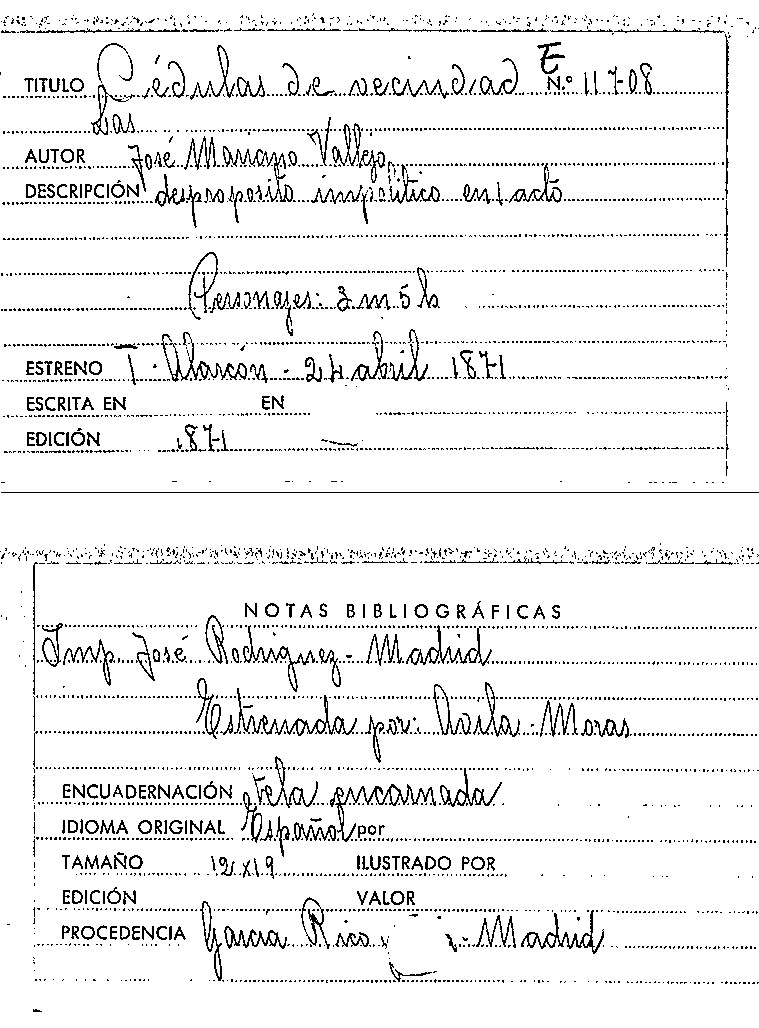 E
TITULO Cédulas de vecindad N.º 117-08
Las
AUTOR José Mariano Vallejo
DESCRIPCIÓN desproposito impolitico en 1 acto
Personajes: 3 m 5 h
ESTRENO T. Alarcón - 24 abril 1871
ESCRITA EN EN
EDICIÓN 1871
NOTAS BIBLIOGRÁFICAS
Imp. José Rodriguez - Madrid
Estrenada por: Avila - Moras
ENCUADERNACIÓN tela encarnada
IDIOMA ORIGINAL Español por
TAMAÑO 12 x 19 ILUSTRADO POR
EDICIÓN VALOR
PROCEDENCIA García Rico - Madrid